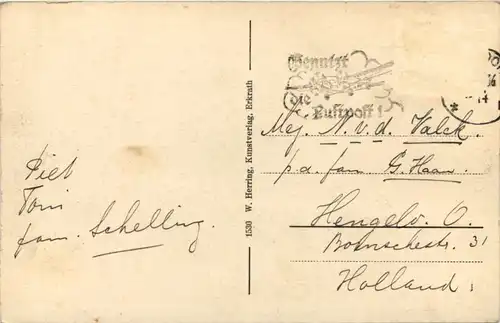 Benutzt
die
Luftpost!
14
Mej. N. v. d. Valck.
p.a. fam. G. Haan.
Hengelo. O.
Bornschestr. 31
Holland.
Piet
Toni
fam. Schelling.
1530 W. Herring, Kunstverlag, Erkrath